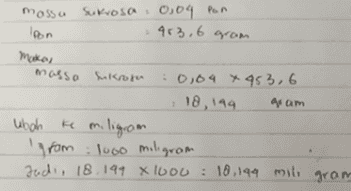 massa sukrosa : 0,04 Pon
1 Pon : 453,6 gram
maka,
massa sukrosa : 0,04 × 453,6
: 18,144 gram
Ubah ke miligram
1 gram : 1000 miligram
Jadi, 18.144 × 1000 : 18.144 mili gram